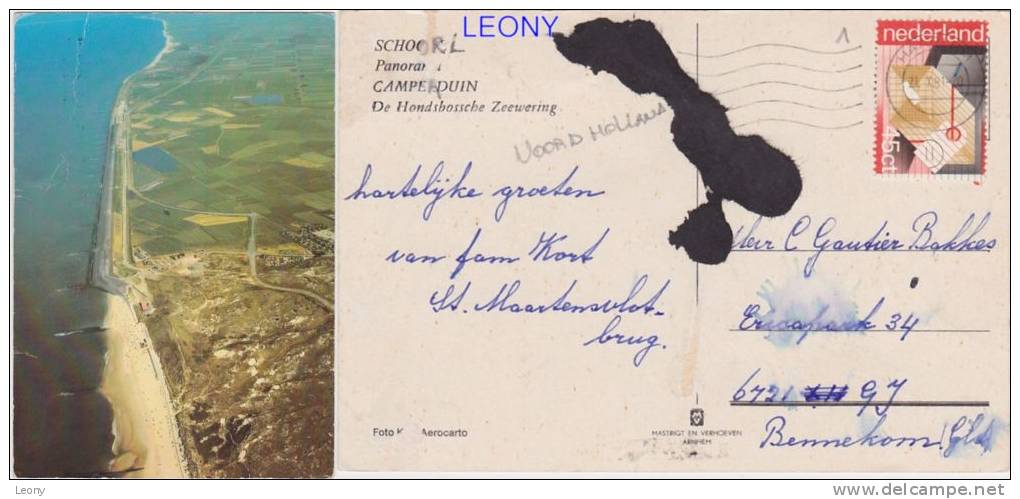 LEONY
SCHOORL
Panorama
CAMPERDUIN
De Hondsbossche Zeewering
NOORD HOLLAND
1
nederland
45ct
hartelijke groeten
van fam Kort
St. Maartensvlot-
brug.
Heer C Gautier Bakkes
Ericapark 34
6721 GJ
Bennekom (Gld)
Foto K Aerocarto
MASTRIGT EN VERHOEVEN
ARNHEM
Leony
delcampe.net